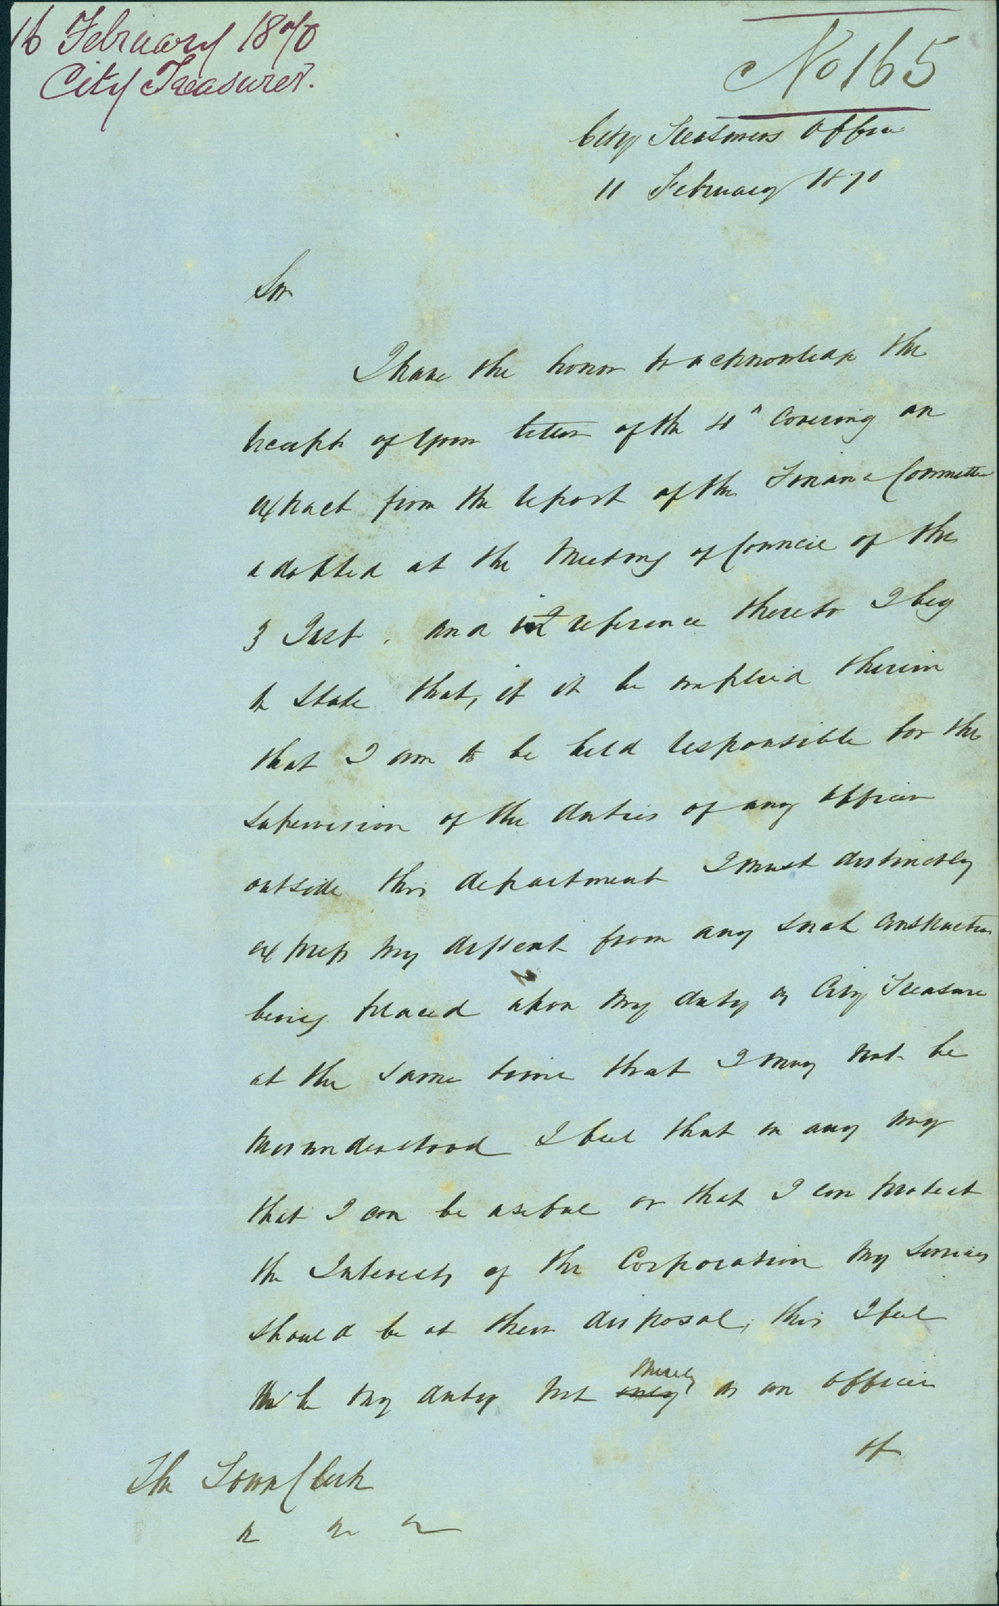 16 February 1870
City Treasurer.
No 165
City Treasurers Office
11 February 1870
Sir
I have the honor to acknowledge the
receipt of your letter of the 4" covering an
extract from the report of the Finance Committee
adopted at the Meeting of Council of the
3 Inst. and in reference thereto I beg
to state that, if it be implied therein
that I am to be held responsible for the
supervision of the duties of any officer
outside this department I must distinctly
express my dissent from any such construction
being placed upon my duty as City Treasurer
at the same time that I may not be
misunderstood I feel that in any way
that I can be useful or that I can protect
the Interests of the Corporation my services
should be at their disposal, this I feel
to be my duty not merely as an officer
of
The Town Clerk